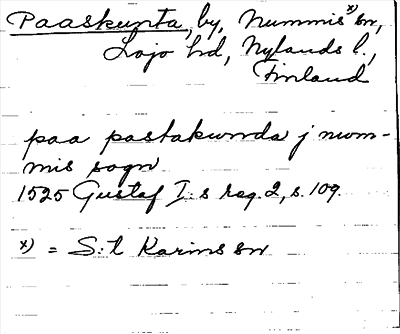 Paaskunta, by, Nummis x) sn,
Lojo hd, Nylands l.,
Finland
paa pastakunda j num-
mis sogn
1525 Gustaf I:s reg. 2, s. 109.
x) = S:t Karins sn